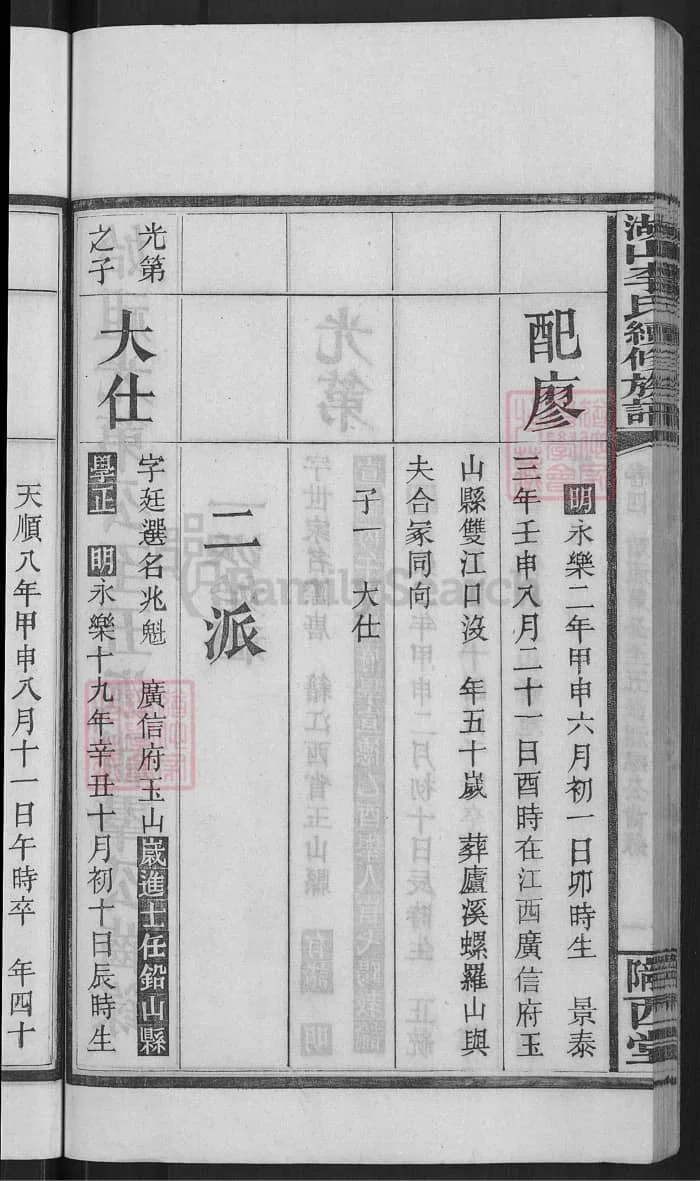 湖山李氏續修族譜
隴西堂
配廖
明永樂二年甲申六月初一日卯時生　景泰
三年壬申八月二十一日酉時在江西廣信府玉
山縣雙江口沒　年五十歲　葬廬溪螺羅山與
夫合冢同向
子一　大仕
二派
光第
之子
大仕
字廷選名兆魁　廣信府玉山歲進士任鉛山縣
學正　明永樂十九年辛丑十月初十日辰時生
天順八年甲申八月十一日午時卒　年四十
FamilySearch